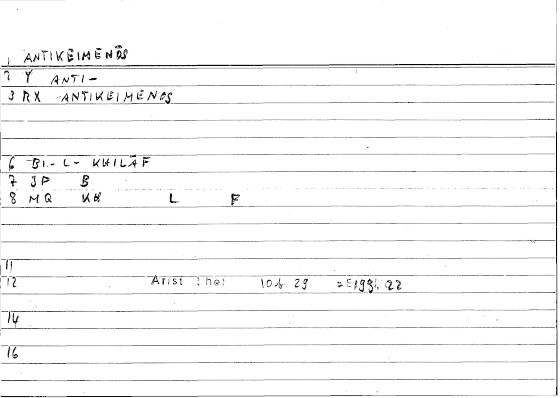 1 ANTIKEIMENŌS
2 Y ANTI-
3 RX ANTIKEIMENŌS
6 BI-L-KHILĀF
7 JP B
8 MQ KH L F
11
12 Arist Rhet 10b 29
14
16